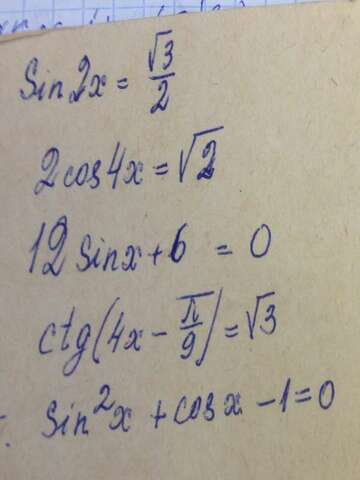 sin2x = √3/2
2cos4x = √2
12 sinx + 6 = 0
ctg(4x - π/9) = √3
sin²x + cosx - 1 = 0